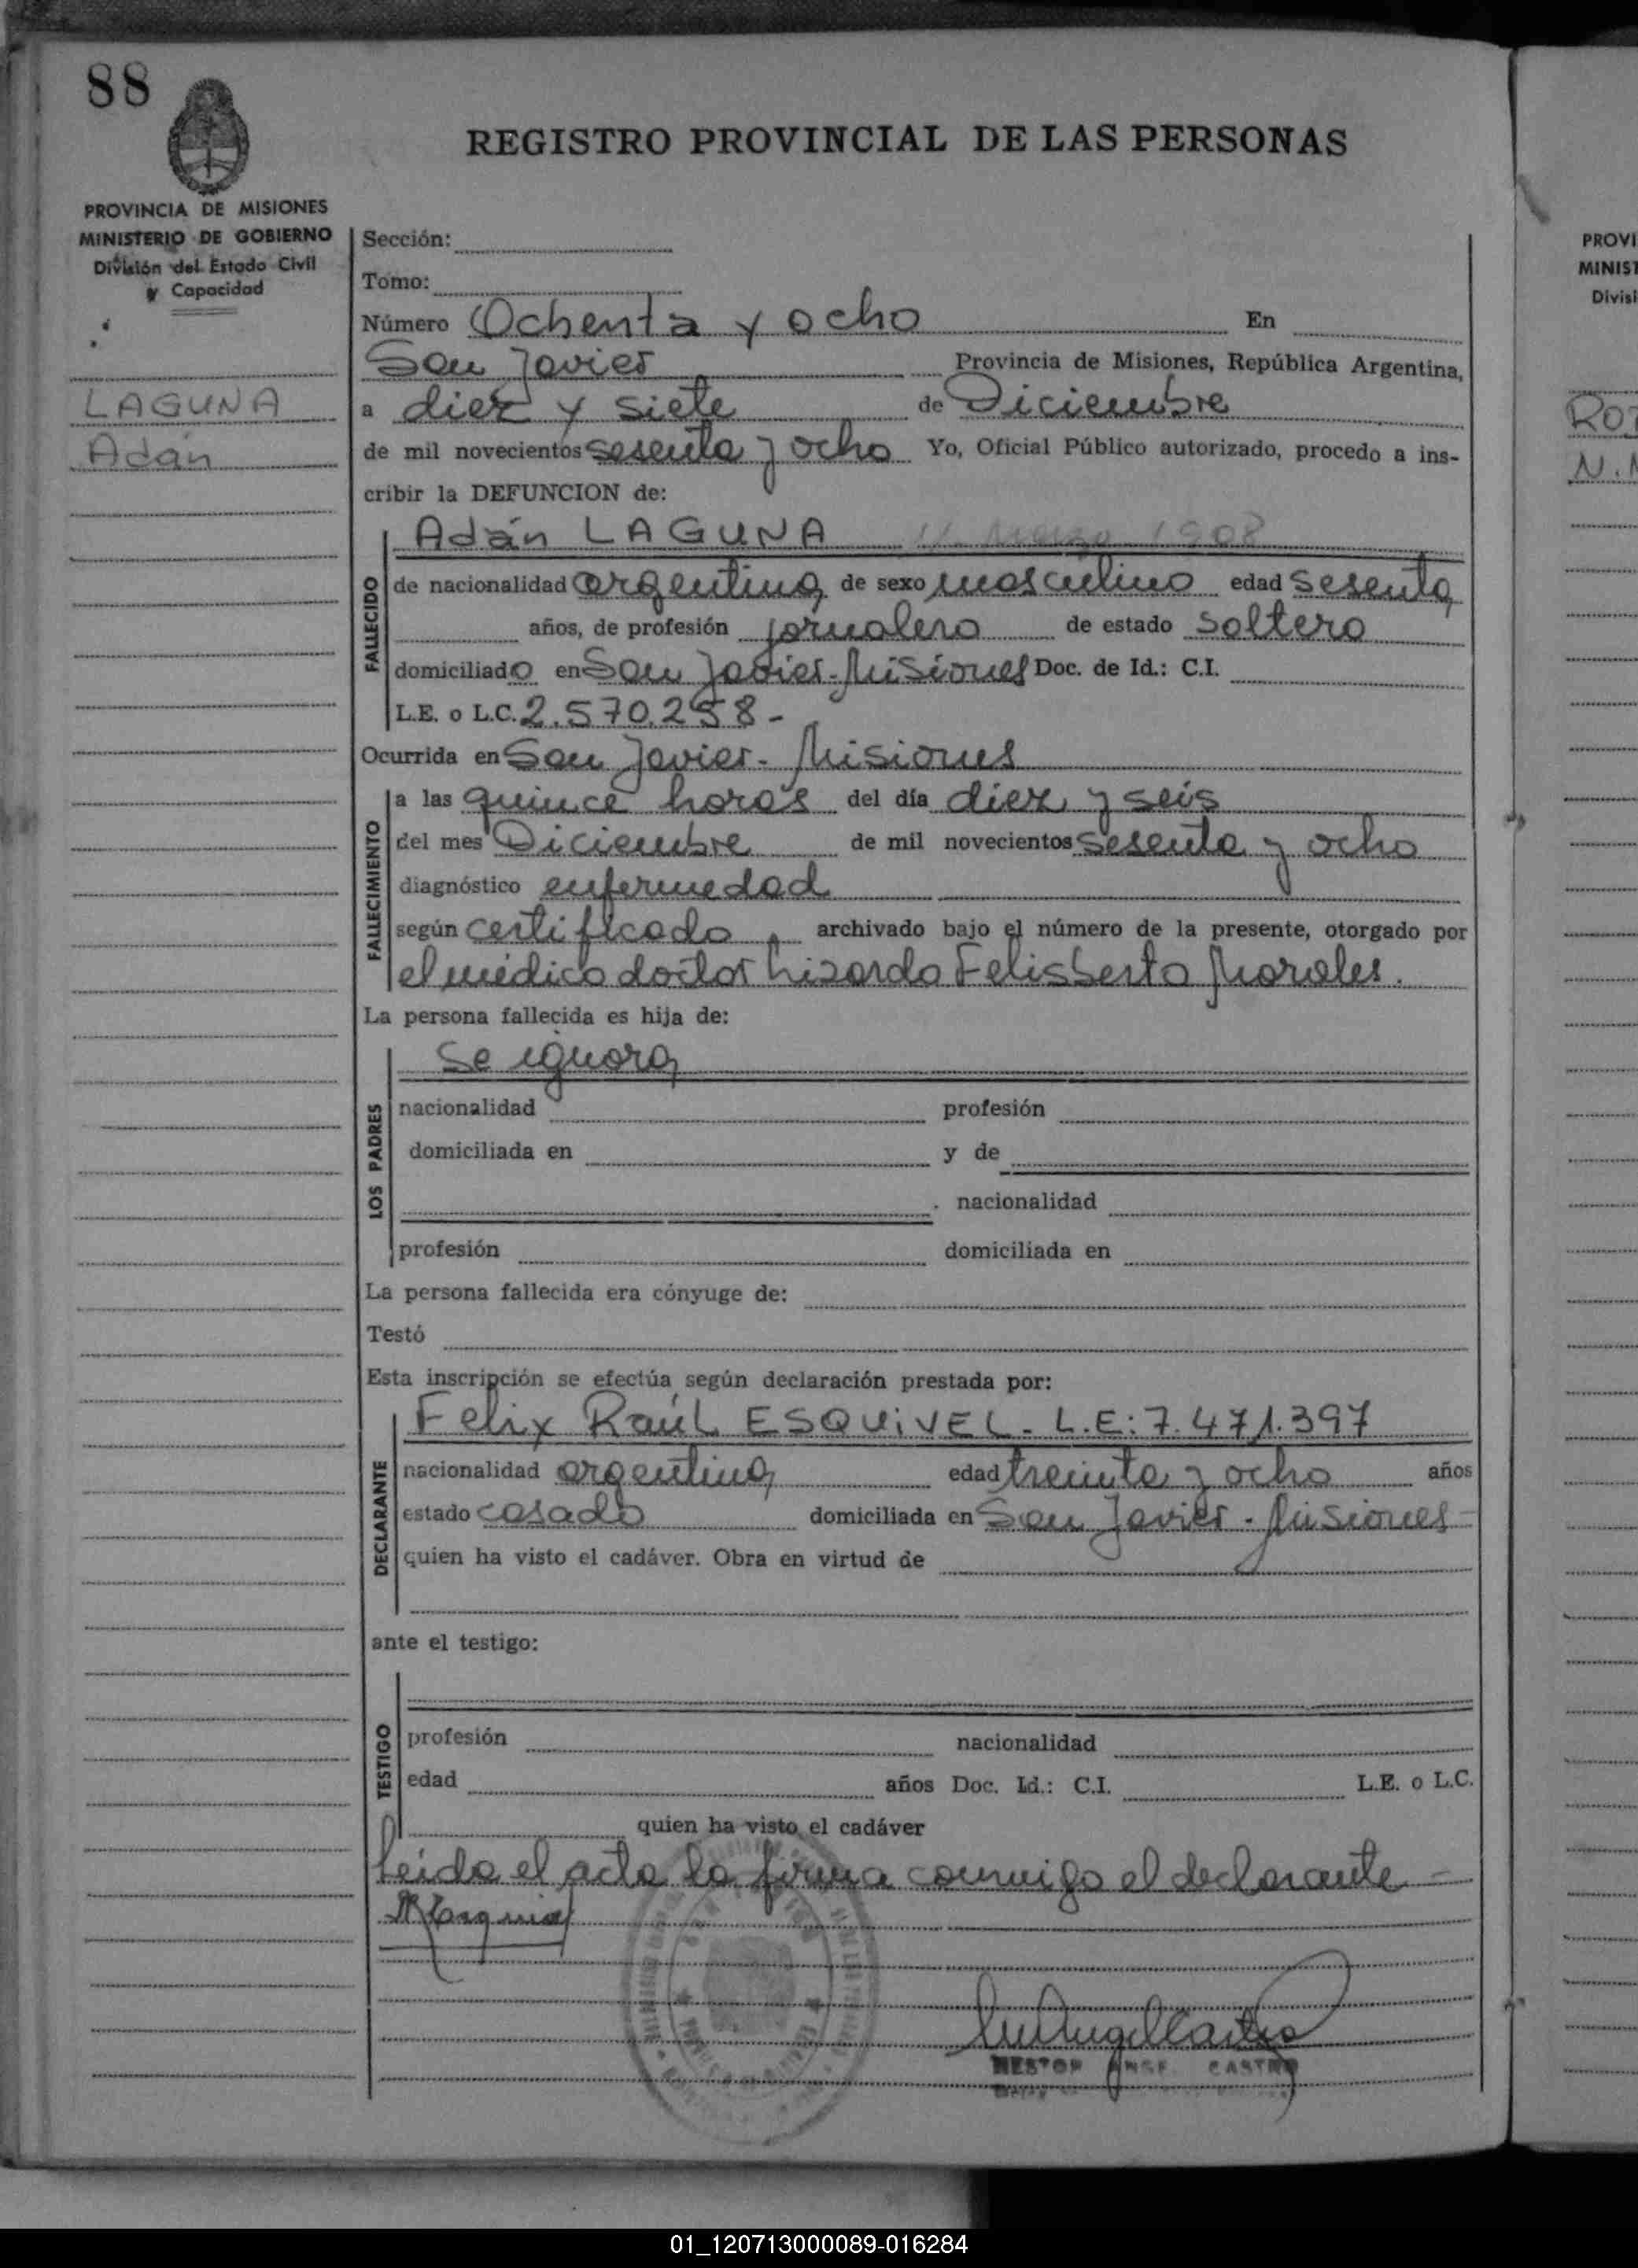 88
REGISTRO PROVINCIAL DE LAS PERSONAS
PROVINCIA DE MISIONES
MINISTERIO DE GOBIERNO
División del Estado Civil
y Capacidad
LAGUNA
Adán
Sección:
Tomo:
Número Ochenta y ocho En
San Javier Provincia de Misiones, República Argentina,
a diez y siete de Diciembre
de mil novecientos sesenta y ocho Yo, Oficial Público autorizado, procedo a ins-
cribir la DEFUNCION de:
FALLECIDO
Adán LAGUNA Marzo 1908
de nacionalidad argentina de sexo masculino edad sesenta
años, de profesión jornalero de estado soltero
domiciliado en San Javier-Misiones Doc. de Id.: C.I.
L.E. o L.C. 2.570.258-
Ocurrida en San Javier- Misiones
FALLECIMIENTO
a las quince horas del día diez y seis
del mes Diciembre de mil novecientos sesenta y ocho
diagnóstico enfermedad
según certificado archivado bajo el número de la presente, otorgado por
el médico doctor Lizardo Felisberto Morales.
La persona fallecida es hija de:
LOS PADRES
Se ignora
nacionalidad profesión
domiciliada en y de
. nacionalidad
profesión domiciliada en
La persona fallecida era cónyuge de:
Testó
Esta inscripción se efectúa según declaración prestada por:
DECLARANTE
Felix Raúl ESQUIVEL. L.E: 7.471.397
nacionalidad argentina edad treinta y ocho años
estado casado domiciliada en San Javier - Misiones-
quien ha visto el cadáver. Obra en virtud de
ante el testigo:
TESTIGO
profesión nacionalidad
edad años Doc. Id.: C.I. L.E. o L.C.
quien ha visto el cadáver
Leída el acta la firma conmigo el declarante -
NESTOR CASTRO
PROVI
MINIST
Divisi
01_120713000089-016284